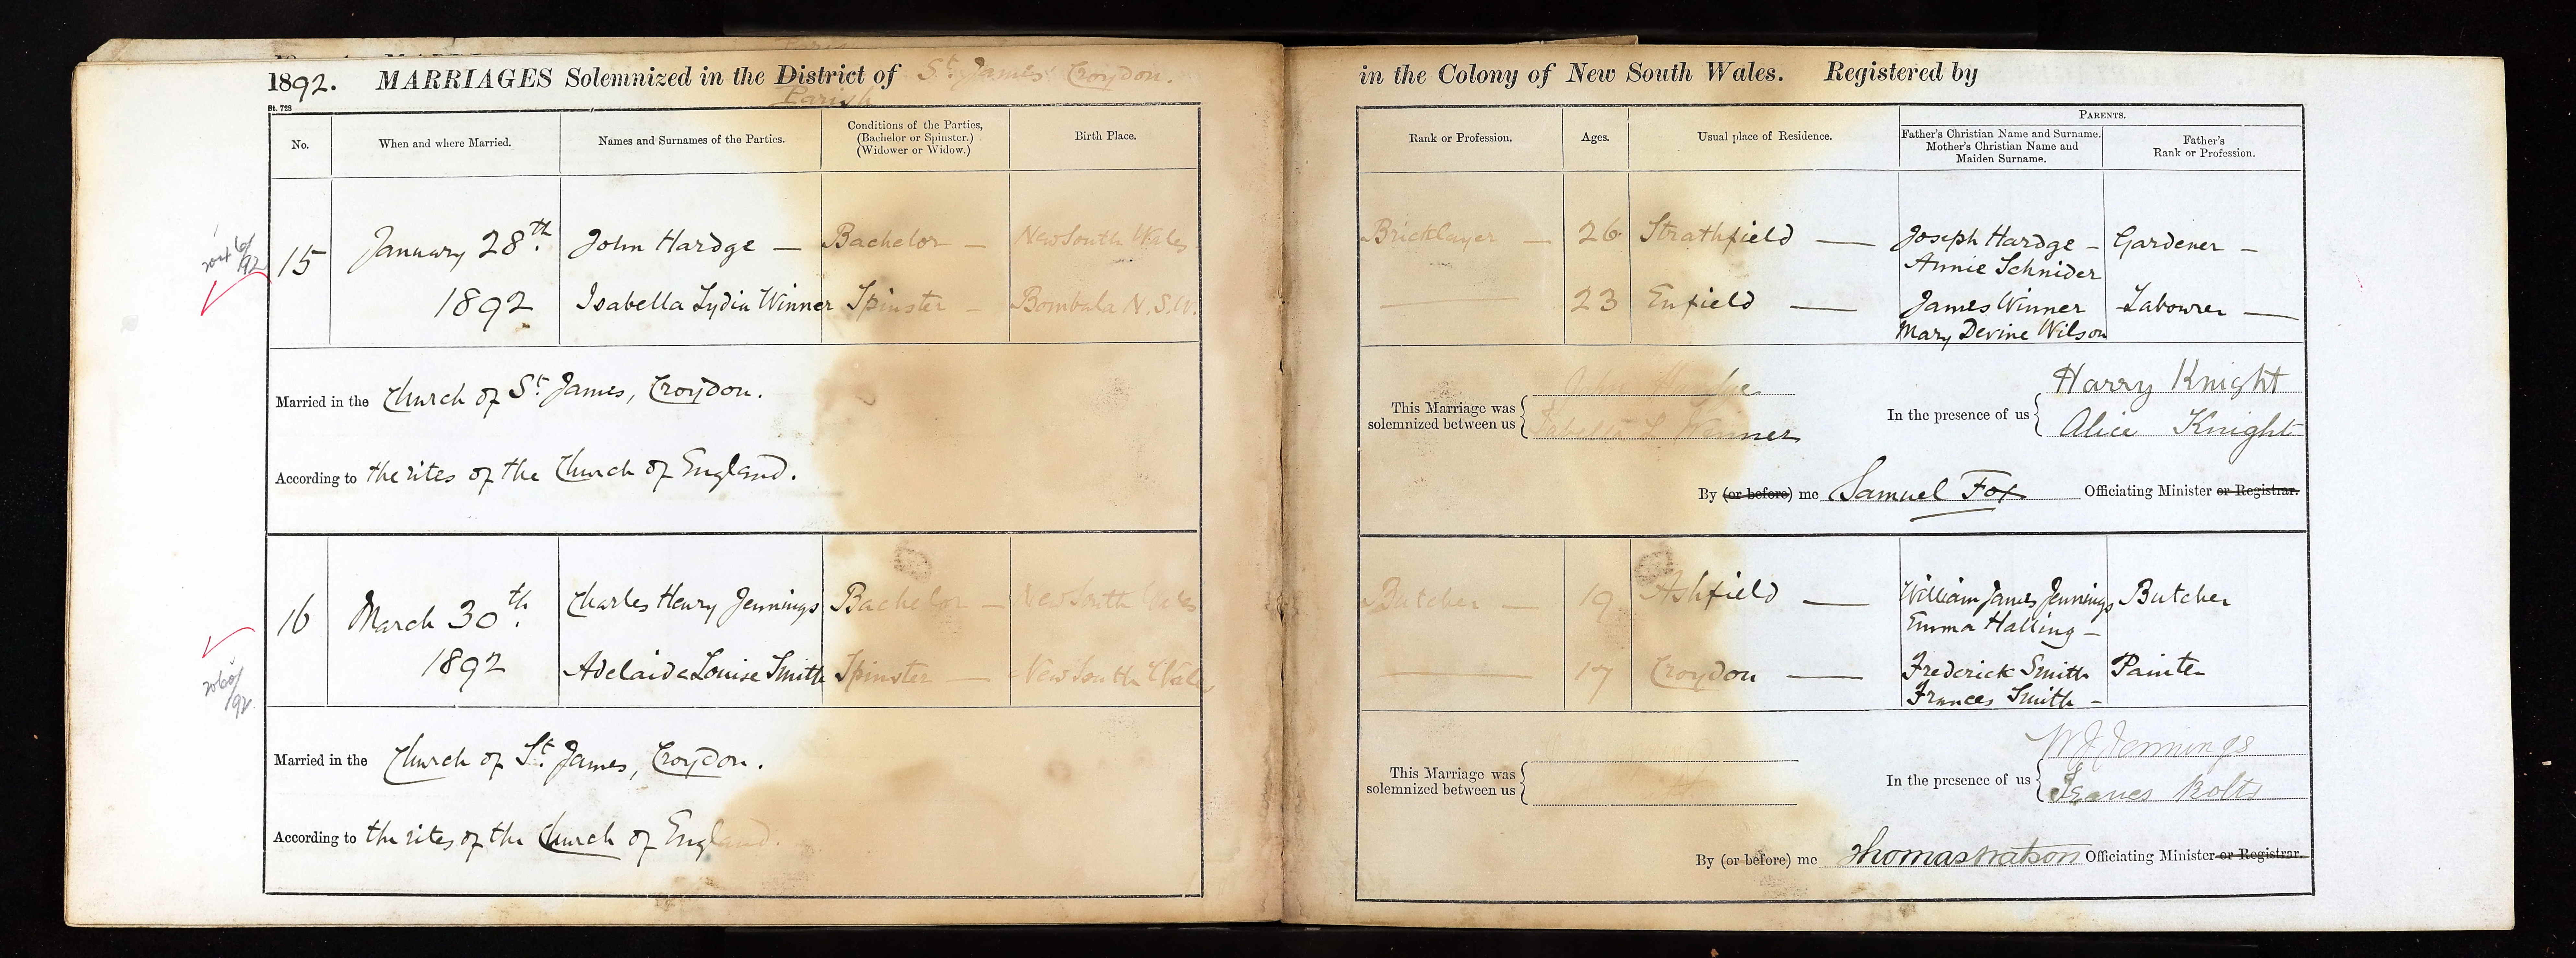 1892. MARRIAGES Solemnized in the District of St. James Croydon.
Parish
in the Colony of New South Wales. Registered by
St. 723
No.
When and where Married.
Names and Surnames of the Parties.
Conditions of the Parties,
(Bachelor or Spinster.)
(Widower or Widow.)
Birth Place.
Rank or Profession.
Ages.
Usual place of Residence.
PARENTS.
Father's Christian Name and Surname.
Mother's Christian Name and
Maiden Surname.
Father's
Rank or Profession.
15
January 28th.
1892
John Hardge —
Bachelor —
New South Wales
Bricklayer —
26
Strathfield —
Joseph Hardge —
Annie Schnider
Gardener —
Isabella Lydia Winner
Spinster —
Bombala N.S.W.
23
Enfield —
James Winner
Mary Devine Wilson
Labourer —
Married in the Church of St. James, Croydon.
According to the rites of the Church of England.
This Marriage was
solemnized between us
John Hardge
Isabella L Winner
In the presence of us
Harry Knight
Alice Knight
By (or before) me Samuel Fox Officiating Minister or Registrar.
16
March 30th.
1892
Charles Henry Jennings
Bachelor —
New South Wales
Butcher —
19
Ashfield —
William James Jennings
Emma Halling —
Butcher
Adelaide Louise Smith
Spinster —
New South Wales
17
Croydon —
Frederick Smith
Frances Smith —
Painter
Married in the Church of St. James, Croydon.
According to the rites of the Church of England.
This Marriage was
solemnized between us
In the presence of us
W J Jennings
By (or before) me Thomas Watson Officiating Minister or Registrar.